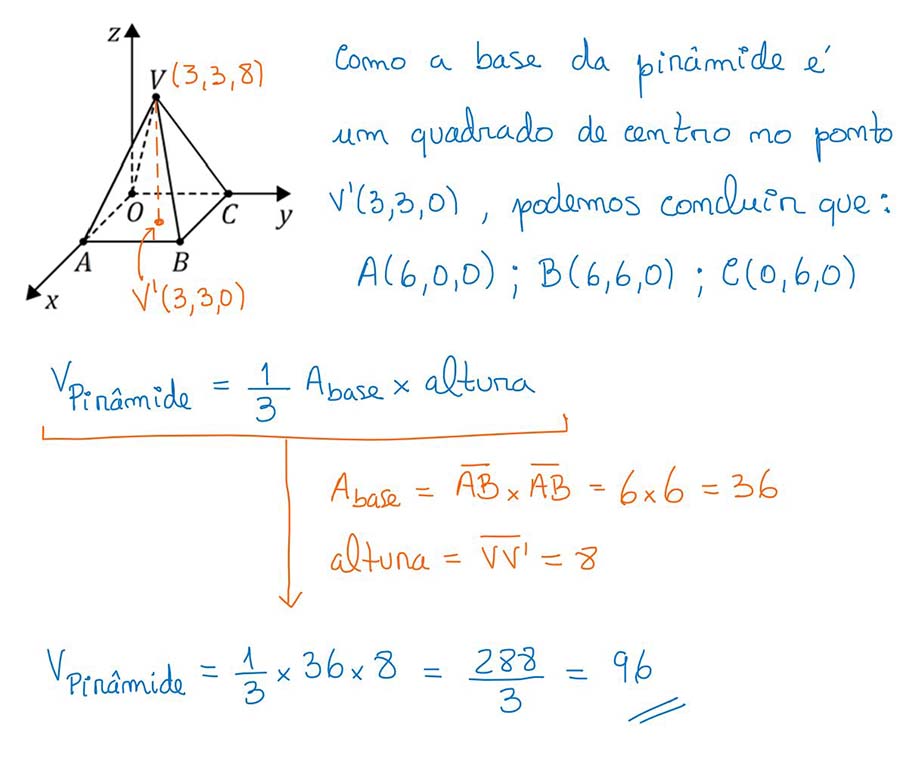 z
V (3,3,8)
O
C
y
A
B
x
V'(3,3,0)
Como a base da pirâmide é
um quadrado de centro no ponto
V'(3,3,0) , podemos concluir que:
A(6,0,0) ; B(6,6,0) ; C(0,6,0)
V_Pirâmide = 1/3 A_base × altura
A_base = A̅B̅ × A̅B̅ = 6×6 = 36
altura = V̅V̅' = 8
V_Pirâmide = 1/3 × 36 × 8 = 288/3 = 96